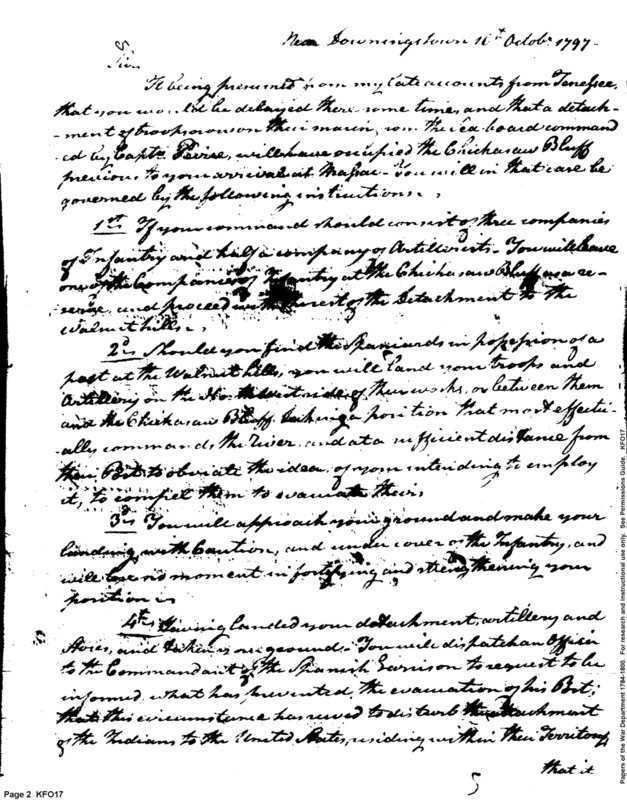 Near Downingstown 16th Octobr. 1797-
Sir
It being presumed from my late accounts from Tenessee,
that you would be delayed there some time, and that a detach-
-ment of troops now on their march, to the sea board command
ed by Captn. Peirse, will have occupied the Chickasaw Bluff
previous to your arrival at Massac- You will in that case be
governed by the following instructions.
1st. If your command should consist of three companies
of Infantry and half a company of Artillerists- You will leave
one of the Companies of Infantry at the Chickasaw Bluff as a re-
-serve, and proceed with the rest of the Detachment to the
Walnut hills.
2d. Should you find the Spaniards in possession of a
post at the Walnut hills, you will land your troops and
Artillery on the North West side of their works, or between them
and the Chickasaw Bluff. taking a position that most effectu-
-ally commands the River, and at a sufficient distance from
their Post to obviate the idea, of your intending to employ
it, to compel them to evacuate theirs
3d. You will approach your ground and make your
landing with Caution, and under cover of the Infantry, and
will lose no moment in fortifying and strengthening your
position
4th. Having landed your detachment, artillery and
Stores, and taken your ground- You will dispatch an Officer
to the Commandant of the Spanish Garrison to request to be
informed, what has prevented, the evacuation of his Post;
that this circumstance has served to disturb the attachment
of the Indians to the United States, residing within their Territory,
that it
5
Page 2 KFO17
Papers of the War Department 1784-1800. For research and instructional use only. See Permissions Guide. KFO17